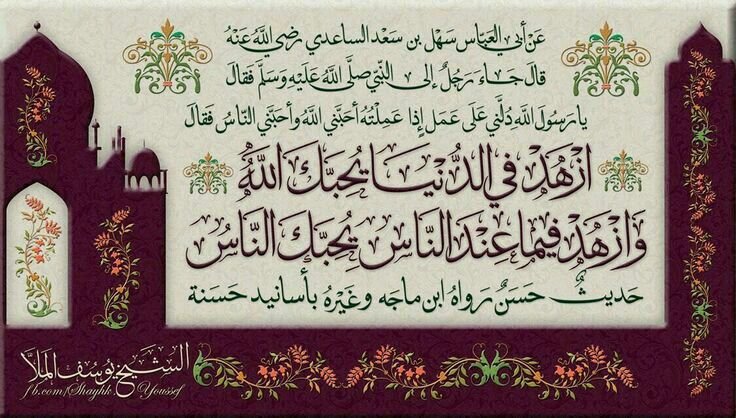 عَنْ أَبِي العَبَّاس سَهْل بن سَعْد السَاعدي رَضِيَ اللَّهُ عَنْهُ
قالَ جَاءَ رَجُلٌ إلى النَّبِيِّ صَلَّى اللَّهُ عَلَيْهِ وَسَلَّمَ فَقالَ
يا رَسُولَ اللَّهِ دُلَّنِي عَلَى عَمَلٍ إذَا عَمِلْتُهُ أَحَبَّنِي اللَّهُ وأَحَبَّنِي النَّاسُ فَقَالَ
ازْهَدْ فِي الدُّنْيَا يُحِبَّكَ اللَّهُ
وَازْهَدْ فِيمَا عِنْدَ النَّاسِ يُحِبَّكَ النَّاسُ
حَديثٌ حَسَنٌ رَوَاهُ ابْن مَاجَه وغَيْرُهُ بأسَانيد حَسَنَة
الشَّيْخ يُوسُف المَلَّا
fb.com/Shayhk Youssef